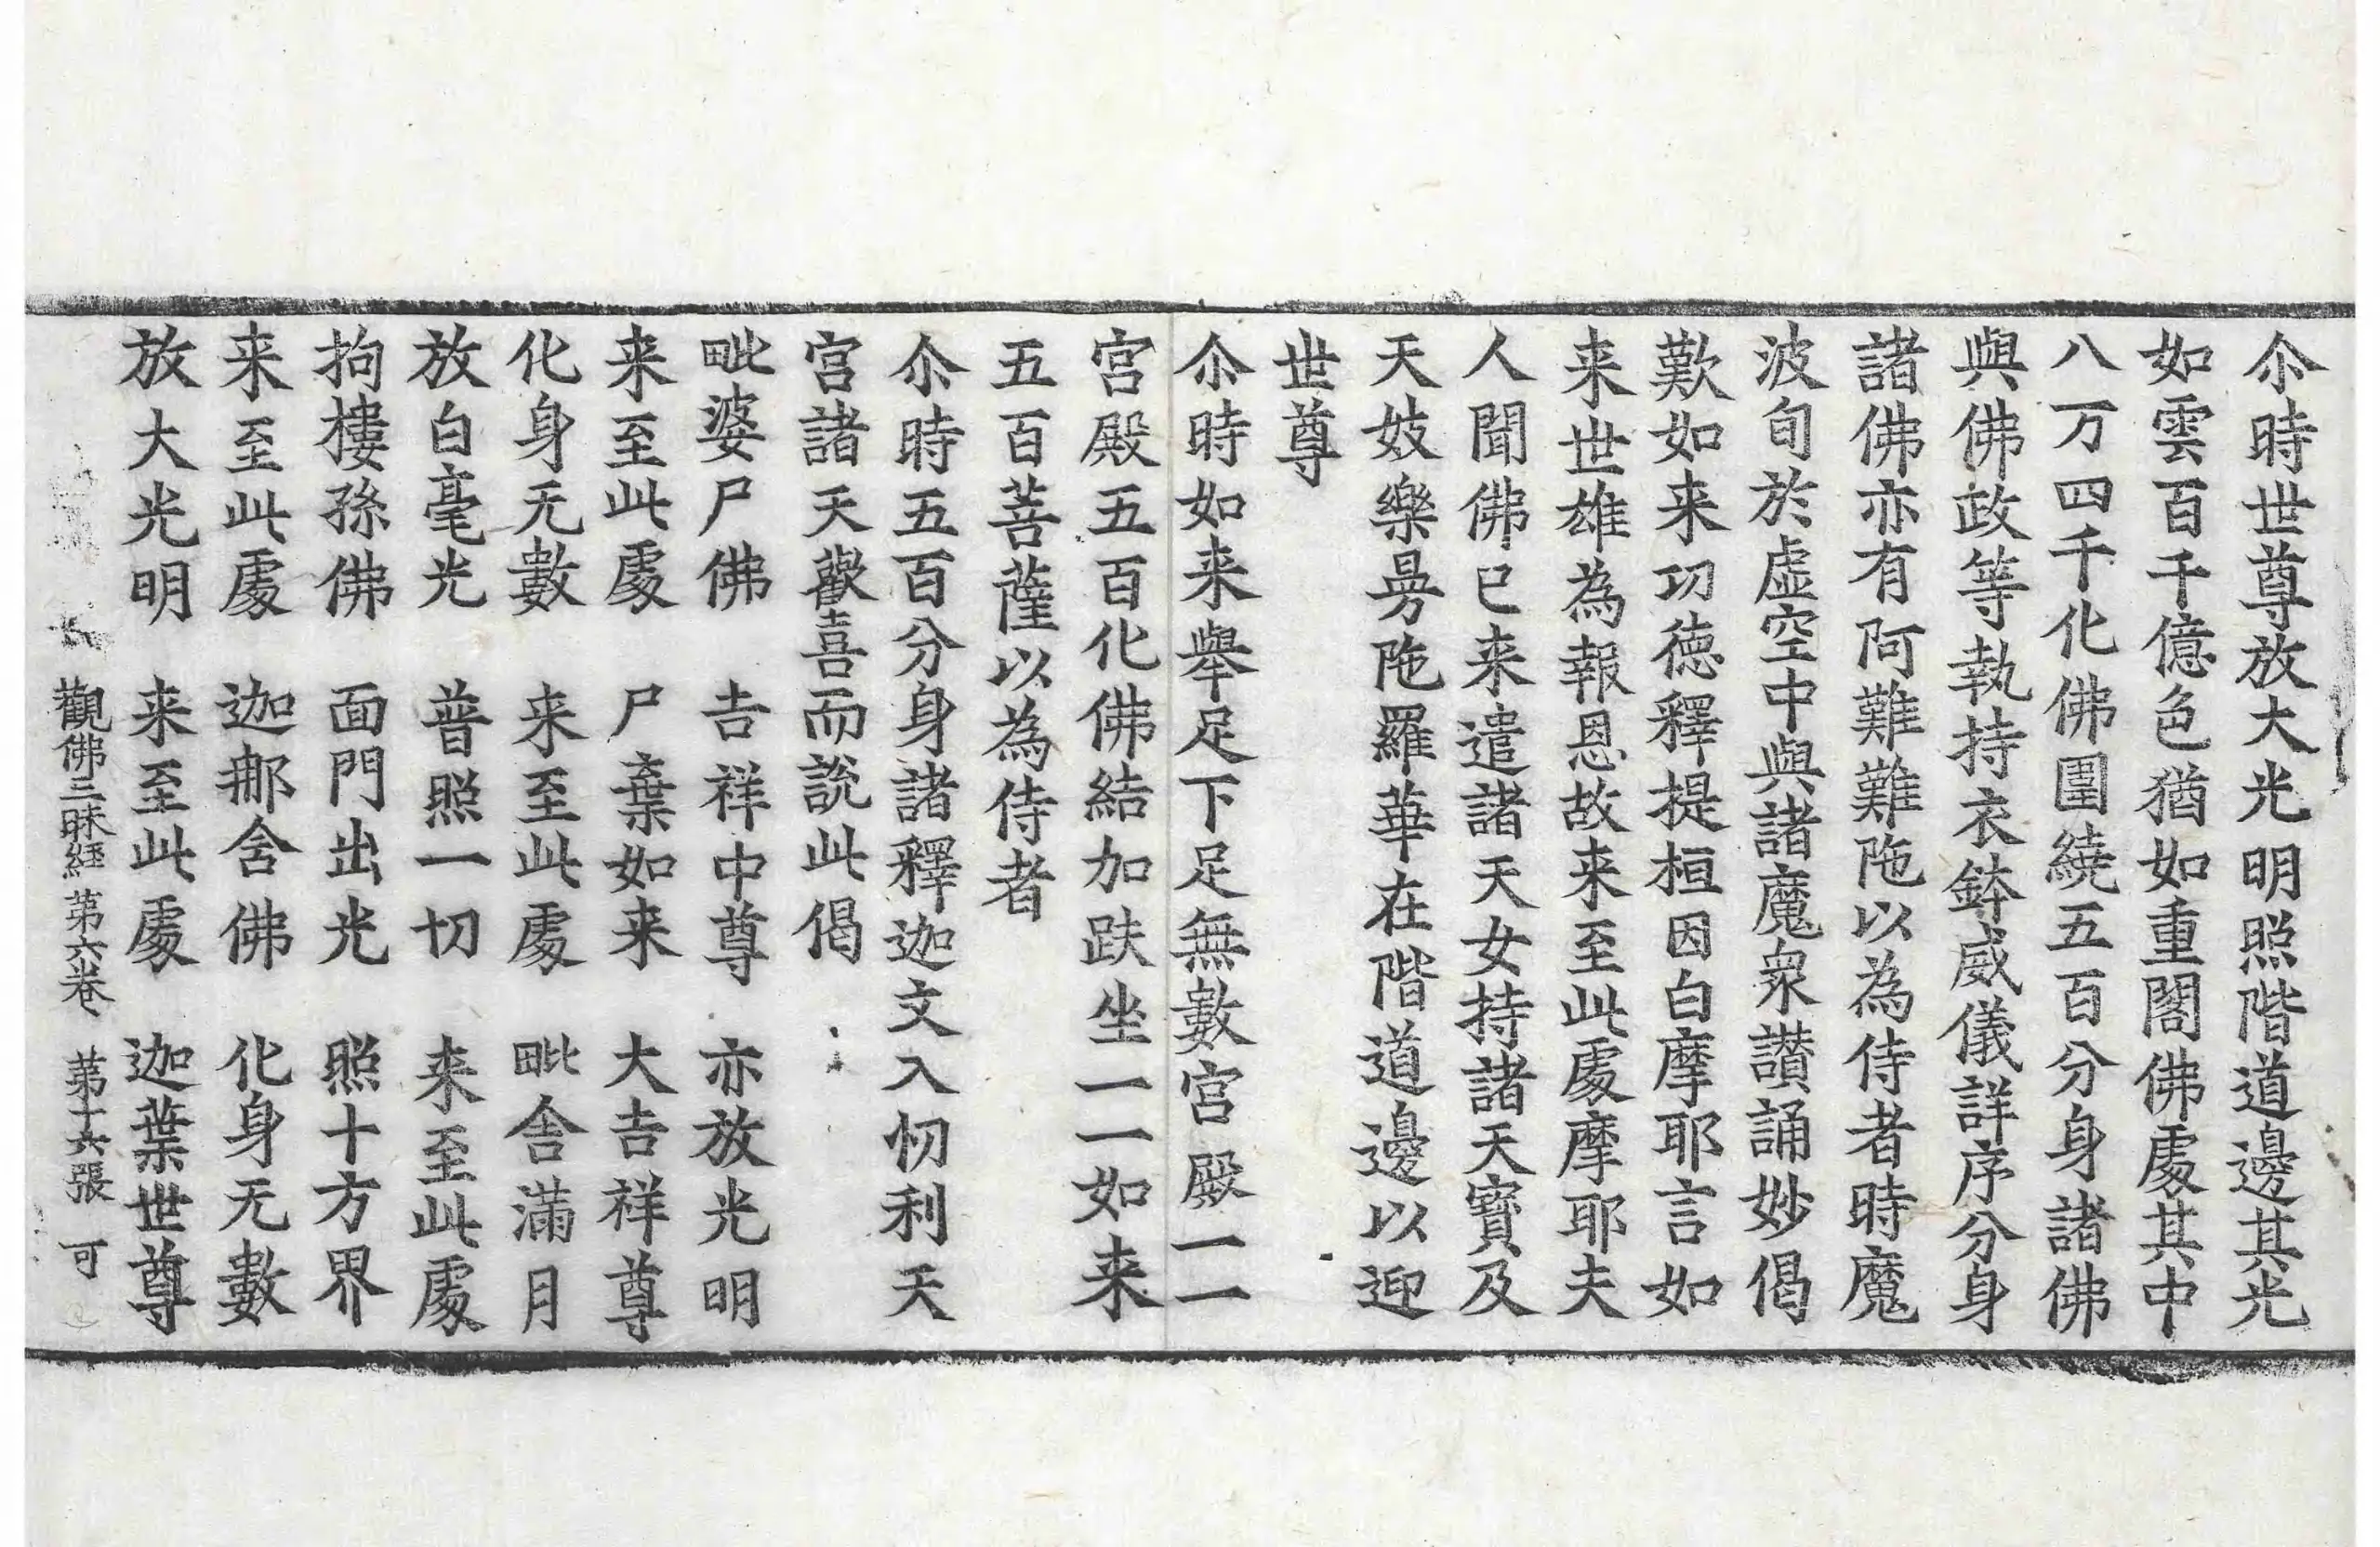 尒時世尊放大光明照階道邊其光
如雲百千億色猶如重閣佛處其中
八万四千化佛圍繞五百分身諸佛
與佛政等執持衣鉢威儀詳序分身
諸佛亦有阿難難陁以為侍者時魔
波旬於虛空中與諸魔衆讚誦妙偈
歎如来㓛徳釋提桓因白摩耶言如
来世雄為報恩故来至此處摩耶夫
人聞佛已来遣諸天女持諸天寶及
天妓樂曼陁羅華在階道邊以迎
世尊
尒時如来舉足下足無數宮殿一一
宮殿五百化佛結加趺坐一一如来
五百菩薩以為侍者
尒時五百分身諸釋迦文入忉利天
宮諸天歡喜而說此偈
毗婆尸佛　吉祥中尊　亦放光明
来至此處　尸棄如来　大吉祥尊
化身无數　来至此處　毗舍滿月
放白毫光　普照一切　来至此處
拘樓孫佛　面門出光　照十方界
来至此處　迦那舍佛　化身无數
放大光明　来至此處　迦葉世尊
觀佛三昧経第六卷　第十六張　可